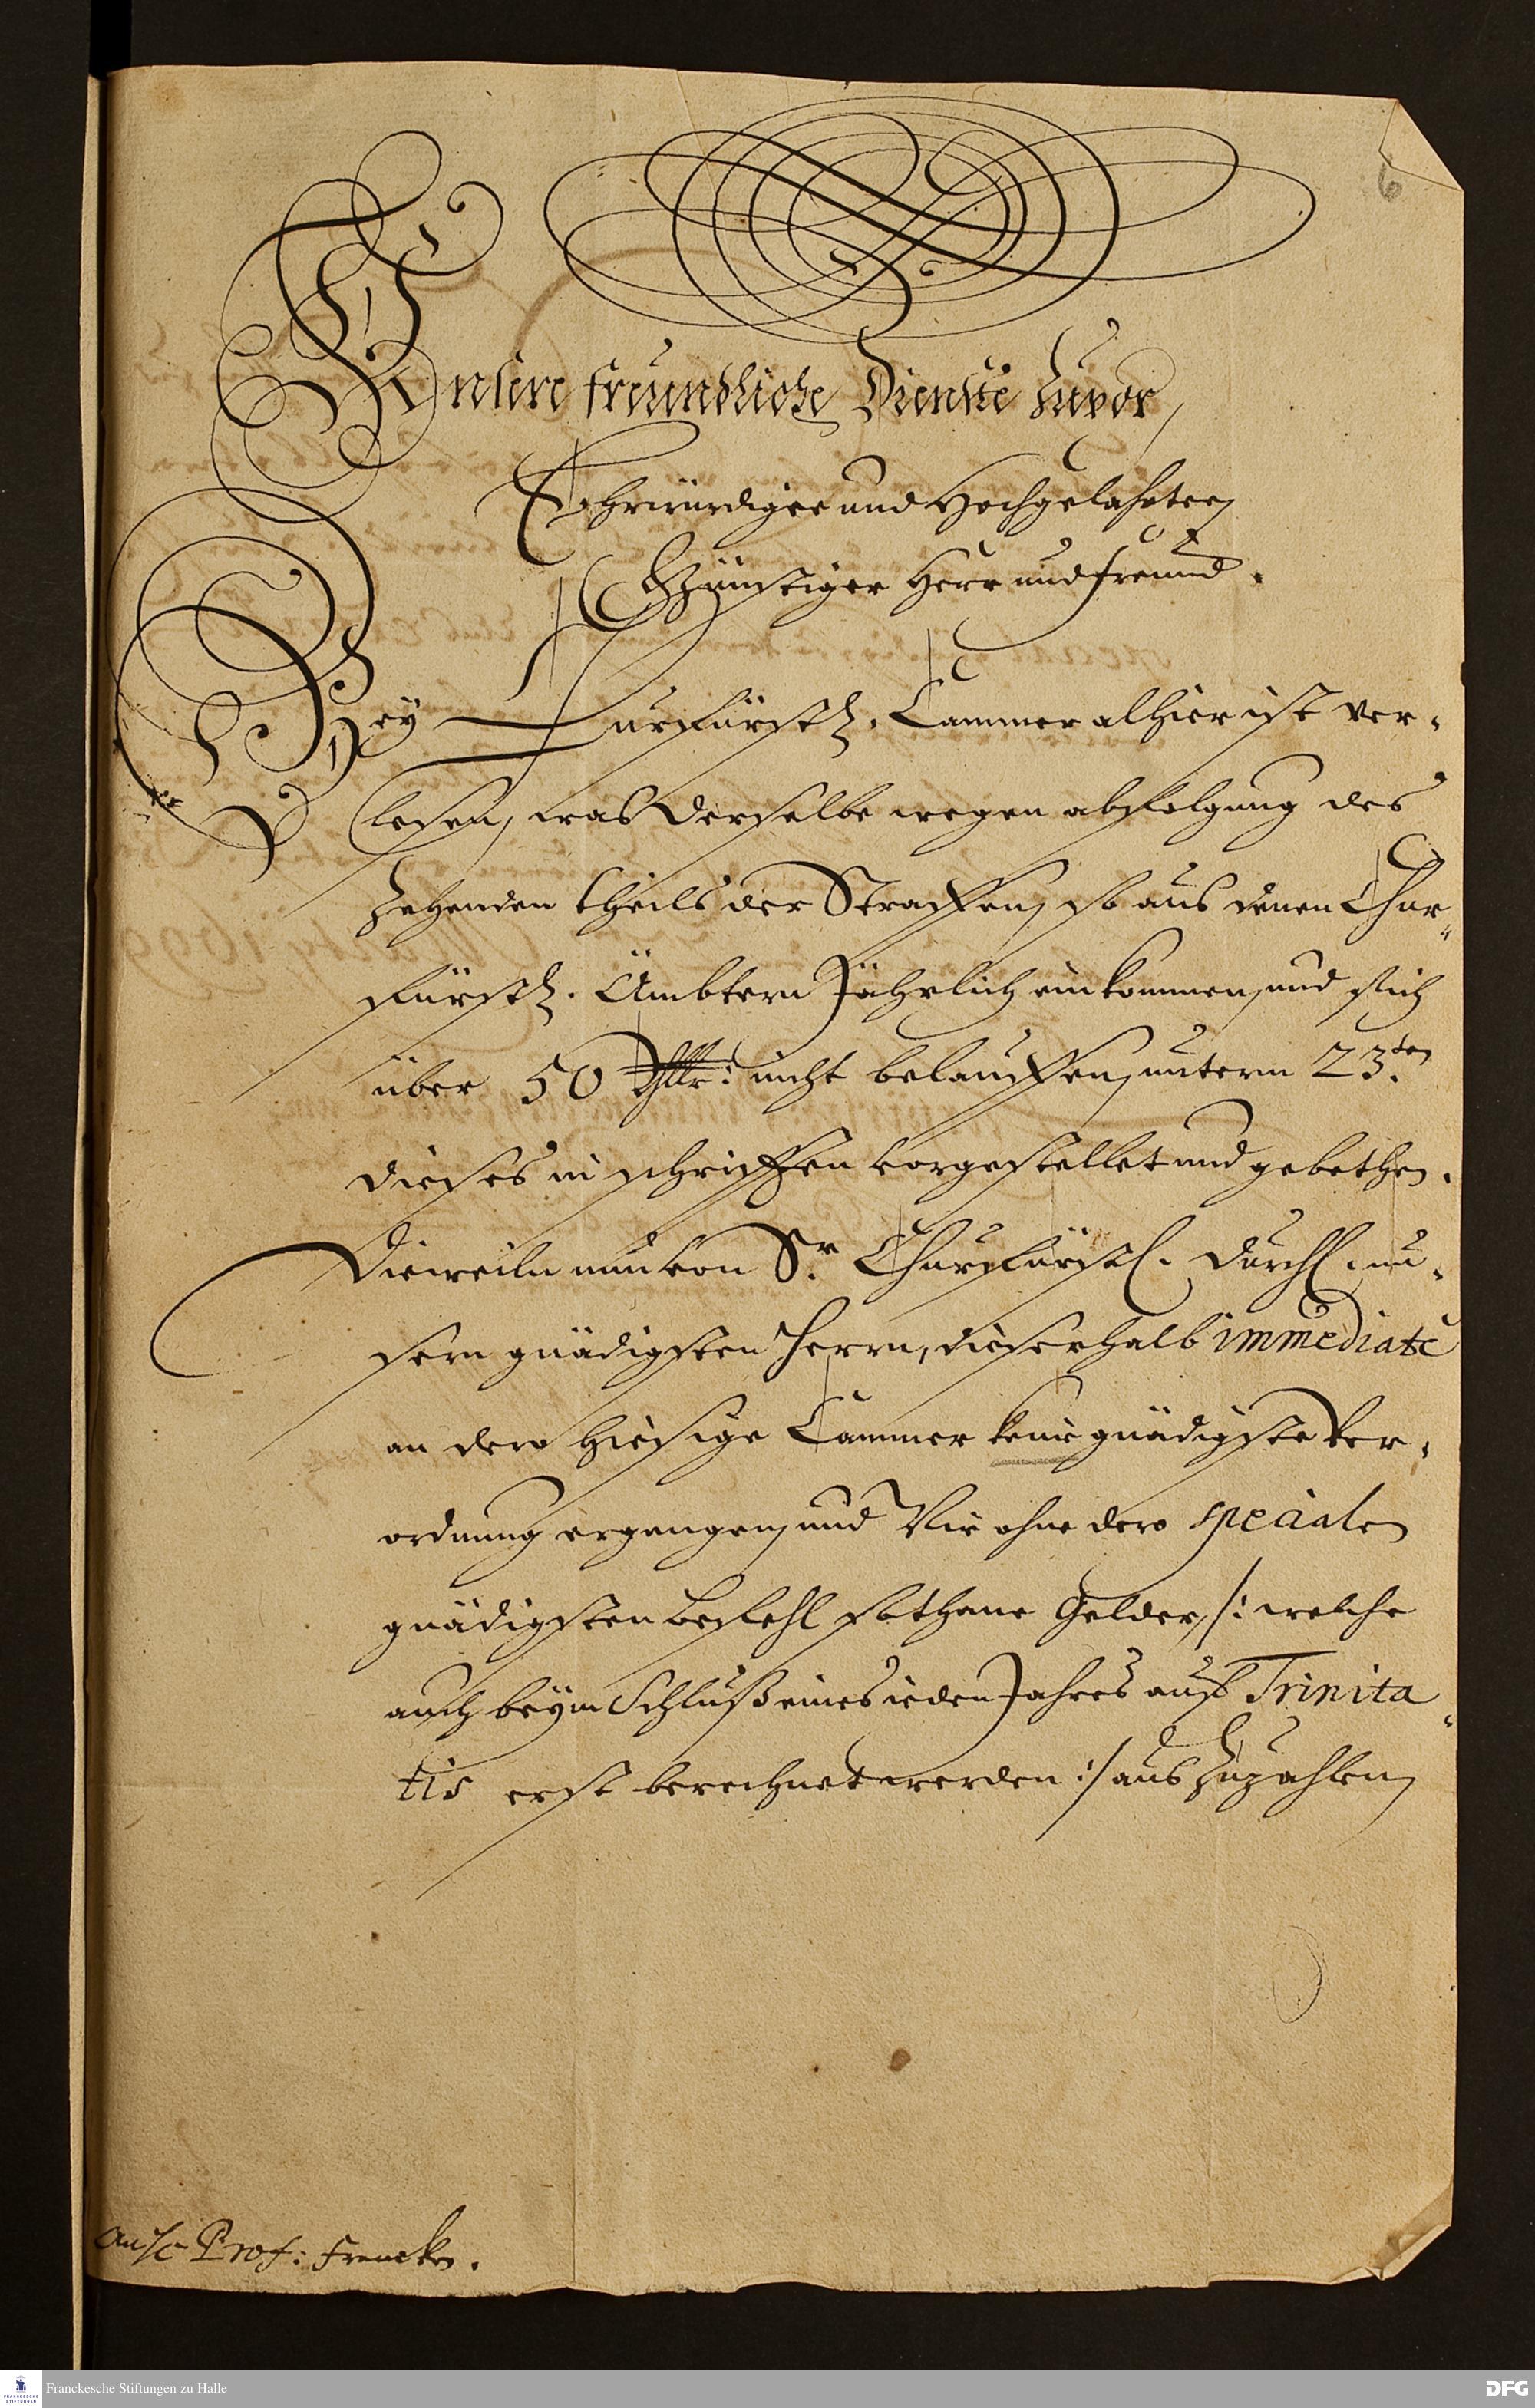 6
Unsere freundliche Dienste zuvor,
Ehrwürdiger und Hochgelahrter,
Günstiger Herr und freund.
Bey Churfürstl. Cammer alhier ist ver-
lesen, was derselbe wegen abfolgung des
Zehenden theils der Straffen, so aus denen Chur-
fürstl. Ämbtern Jährlich einkommen, und sich
über 50 Thlr: nicht belauffen, unterm 23.ten
dieses in schrifften vorgestellet und gebethen.
Dieweiln nun von Sr. Churfürstl. Durchl. un-
serm gnädigsten Herrn, dieserhalb immediatè
an dero hiesige Cammer keine gnädigste Ver-
ordnung ergangen, und Wir ohne dero specialen
gnädigsten Befehl sothane Gelder, /: welche
auch beym Schluß eines ieden Jahres auff Trinita-
tis erst berechnet werden :/ aus Zuzahlen,
An H. Prof: Francken.
Franckesche Stiftungen zu Halle
FRANCKESCHE STIFTUNGEN
DFG